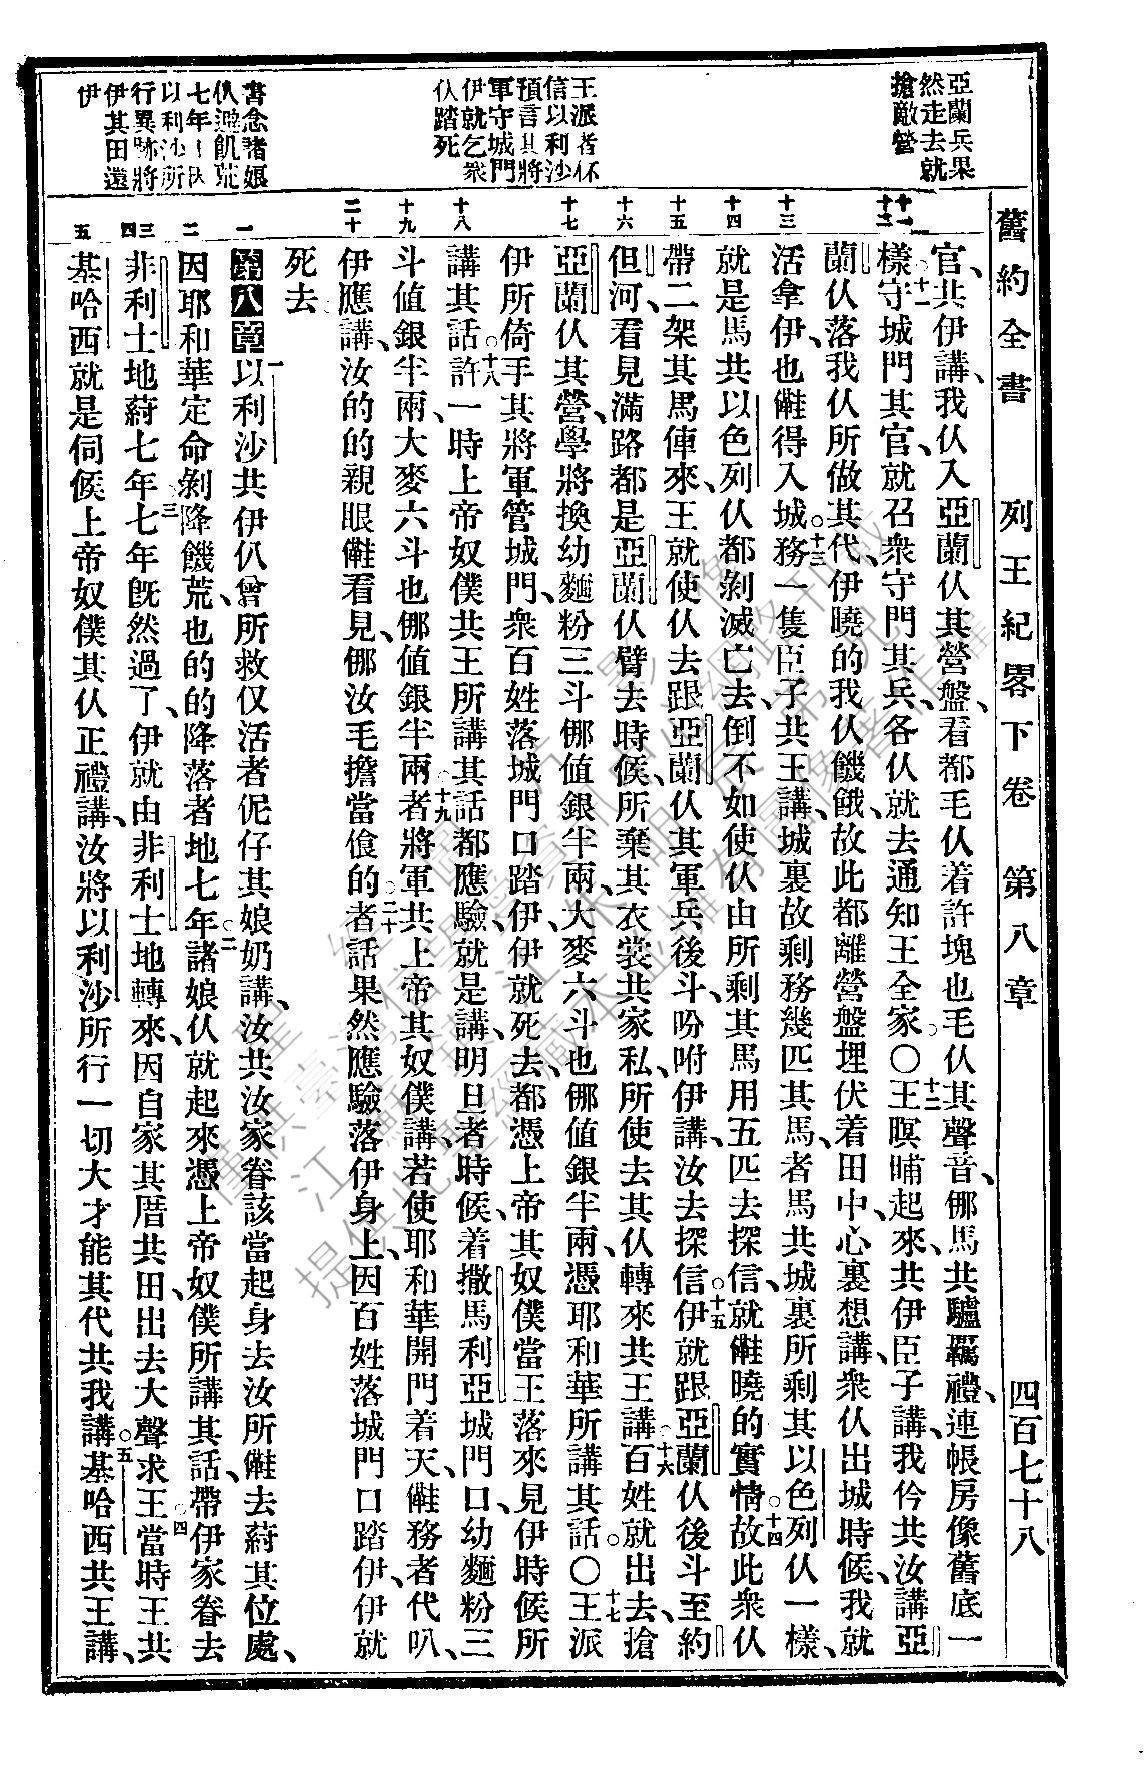 舊約全書 列王紀畧下卷 第八章 四百七十八
亞蘭兵果
然走去就
搶敵營
王派者伓
信以利沙
預言其將
軍守城門
伊就乞衆
仈踏死
書念諸娘
仈避飢荒
七年因
以利沙所
行異跡將
伊其田還
伊
十一 十二 十三 十四 十五 十六 十七 十八 十九 二十 一 二 三 四 五
官、共伊講、我仈入亞蘭仈其營盤、看都毛仈着許塊也毛仈其聲音、㑚馬共驢羈禮、連帳房像舊底一
樣、○十一守城門其官就召衆守門其兵、各仈就去通知王全家○十二王暝晡起來、共伊臣子講、我仱共汝講亞
蘭仈落我仈所做其代、伊曉的我仈饑餓、故此都離營盤埋伏着田中、心裏想講、衆仈出城時候、我就
活拿伊、也㑲得入城、○十三務一隻臣子共王講、城裏故剩務幾匹其馬、者馬共城裏所剩其以色列仈一樣、
就是馬共以色列仈都剝滅亡去、倒不如使仈由所剩其馬用五匹去探信、就㑲曉的實情、○十四故此衆仈
帶二架其馬俥來、王就使仈去跟亞蘭仈其軍兵後斗、吩咐伊講、汝去探信、○十五伊就跟亞蘭仈後斗、至約
但河、看見滿路都是亞蘭仈臂去時候、所棄其衣裳共家私、所使去其仈轉來共王講、○十六百姓就出去、搶
亞蘭仈其營、學將換幼麵粉三斗㑚值銀半兩、大麥六斗也㑚值銀半兩、憑耶和華所講其話○十七王派
伊所倚手其將軍管城門、衆百姓落城門口踏伊、伊就死去、都憑上帝其奴僕當王落來見伊時候所
講其話、○十八許一時上帝奴僕共王所講其話都應驗、就是講、明旦者時候、着撒馬利亞城門口、幼麵粉三
斗値銀半兩、大麥六斗也㑚值銀半兩、○十九者將軍共上帝其奴僕講、若使耶和華開門着天、㑲務者代叭、
伊應講、汝的的親眼㑲看見、㑚汝毛擔當飡的、○二十者話果然應驗落伊身上、因百姓落城門口踏伊、伊就
死去
第八章 一以利沙共伊仈曾所救仅活者伲仔其娘奶講、汝共汝家眷該當起身去汝所㑲去蒔其位處、
因耶和華定命剝降饑荒、也的的降落者地七年、○二諸娘仈就起來憑上帝奴僕所講其話、帶伊家眷去
非利士地蒔七年、○三七年旣然過了、伊就由非利士地轉來、因自家其厝共田出去大聲求王、○四當時王共
基哈西就是伺候上帝奴僕其仈正禮講、汝將以利沙所行一切大才能其代共我講、○五基哈西共王講、